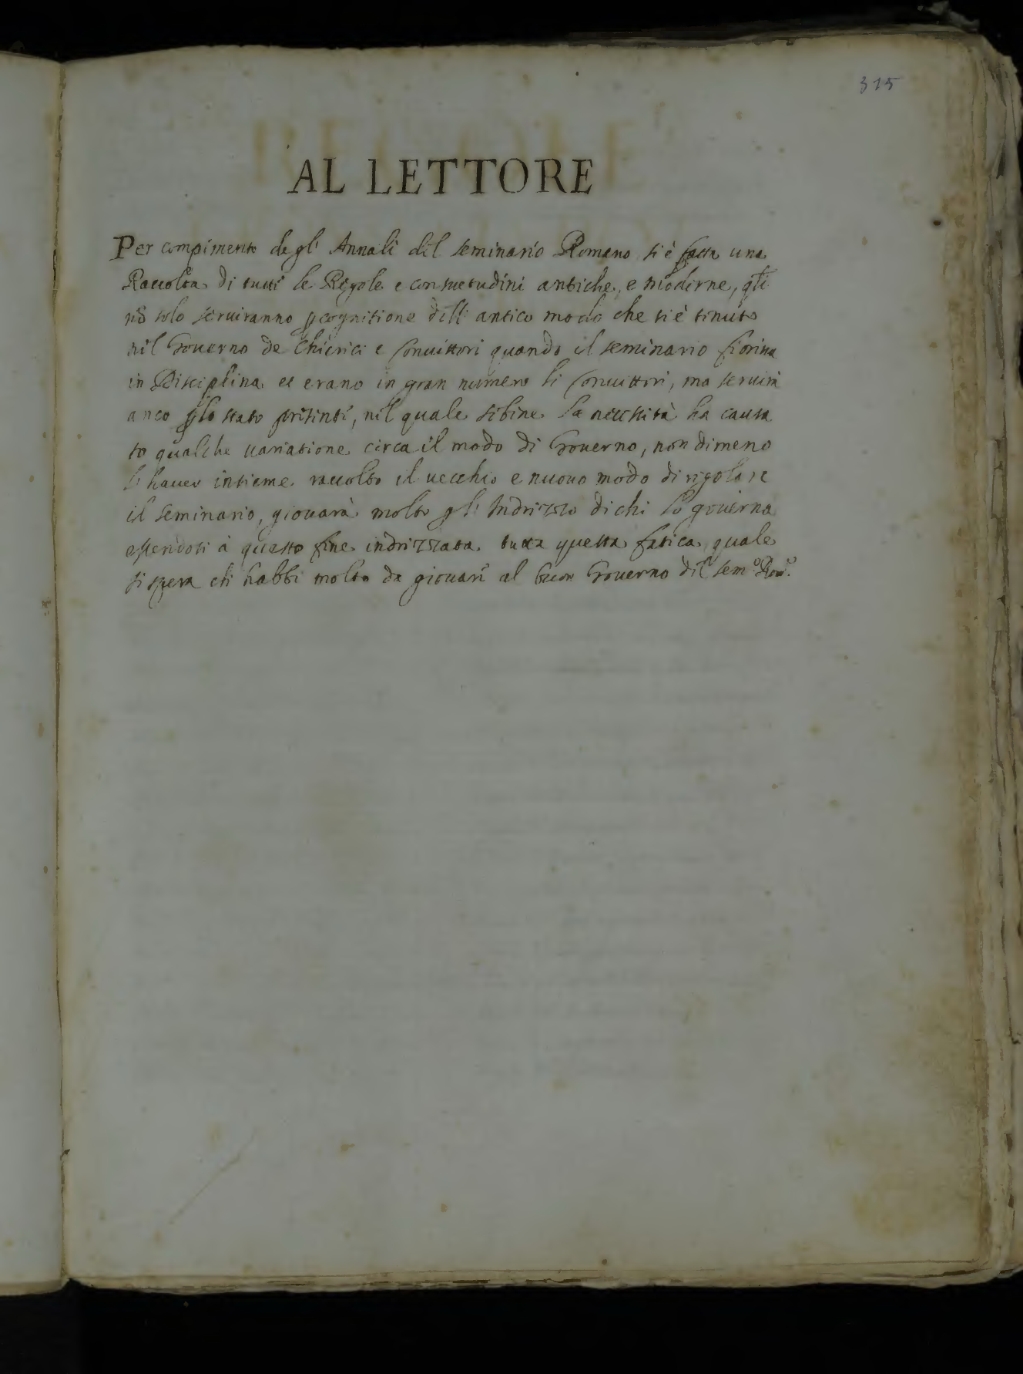 315
AL LETTORE
Per compimento degl' Annali del seminario Romano si è fatta una
Raccolta di tutte le Regole e consuetudini antiche, e moderne, qli
nõ solo serviranno p cognitione dell' antico modo che si è tenuto
nel Governo de Chierici e Convittori quando il seminario fioriva
in Disciplina et erano in gran numero li Convittori, ma servirà
anco p lo stato presente, nel quale sibene la necessità ha causa
to qualche variatione circa il modo di Governo, non dimeno
l' haver insieme raccolto il vecchio e nuovo modo di regolare
il seminario, giovarà molto pl' Indrizzo di chi lo governa
essendosi à questo fine indrizzata tutta questa fatica, quale
si spera che habbi molto da giovare al buon Governo del semº Romº.